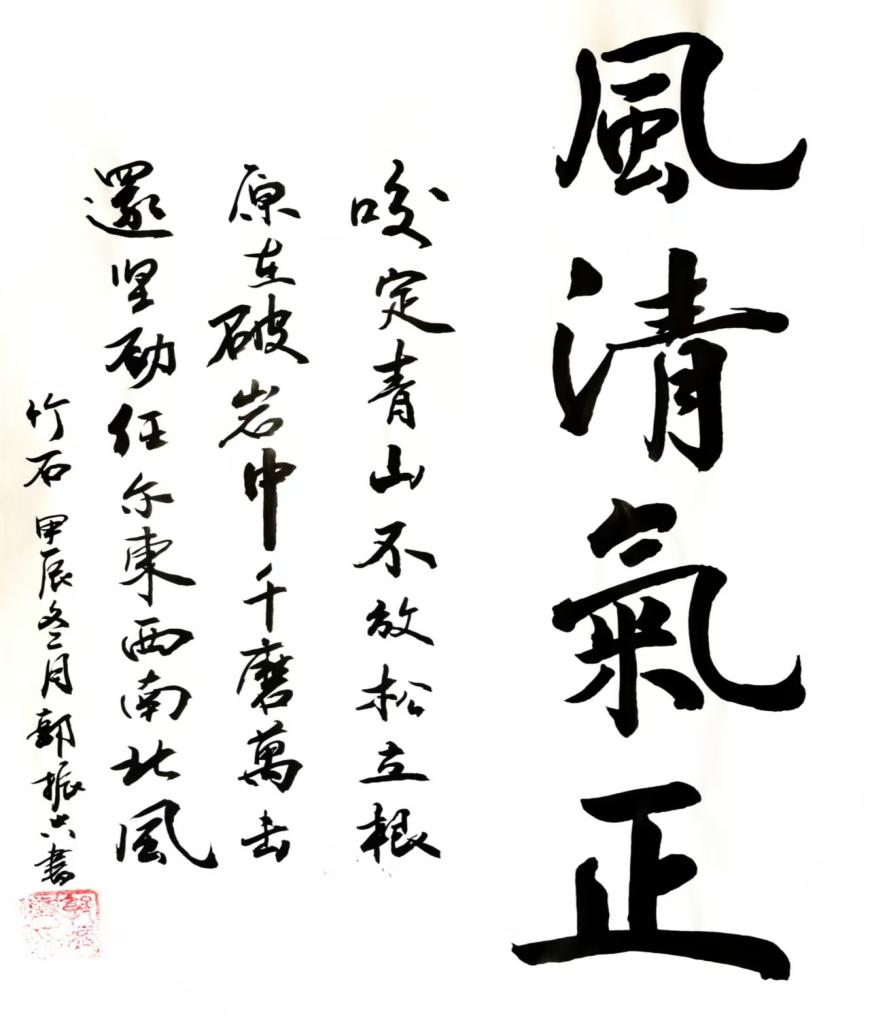 風清氣正
咬定青山不放松立根
原在破岩中千磨萬击
還坚劲任尔東西南北風
竹石 甲辰冬月郭振六書